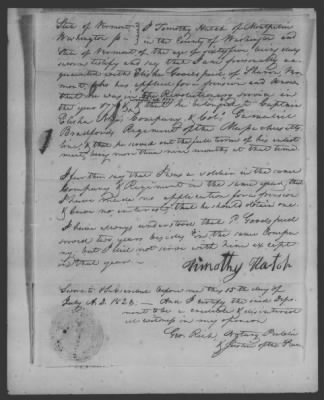 State of Vermont } I Timothy Hatch of Montpelier
Washington ss } in the County of Washington and
State of Vermont of the age of sixty four, being duly
sworn testify and say that I am personally ac-
quainted with Elisha Goodspeed of Sharon Ver-
mont who has applied for a pension and know
that he was in the Revolutionary service in
the year 177 & that he belonged to Captain
Elisha Company & Col. Gamaliel
Bradfords Regiment of the Massachusetts
line, & that he served out the full term of his enlist-
ment, being more than nine months at that time.
I further say that I was a soldier in the same
Company & Regiment in the same year, that
I have made no application for a pension
& have no interest that he should obtain one.
I have always understood that P. Goodspeed
served two years besides in the same Compa-
ny, but I did not serve with him except
in that year —
Timothy Hatch
Sworn to & subscribed before me this 15th day of
July A.D. 1828. — And I certify the said Depo-
nent to be a credible & disinterested
witness in my opinion
Geo. Rich, Notary Public
& Justice of the Peace